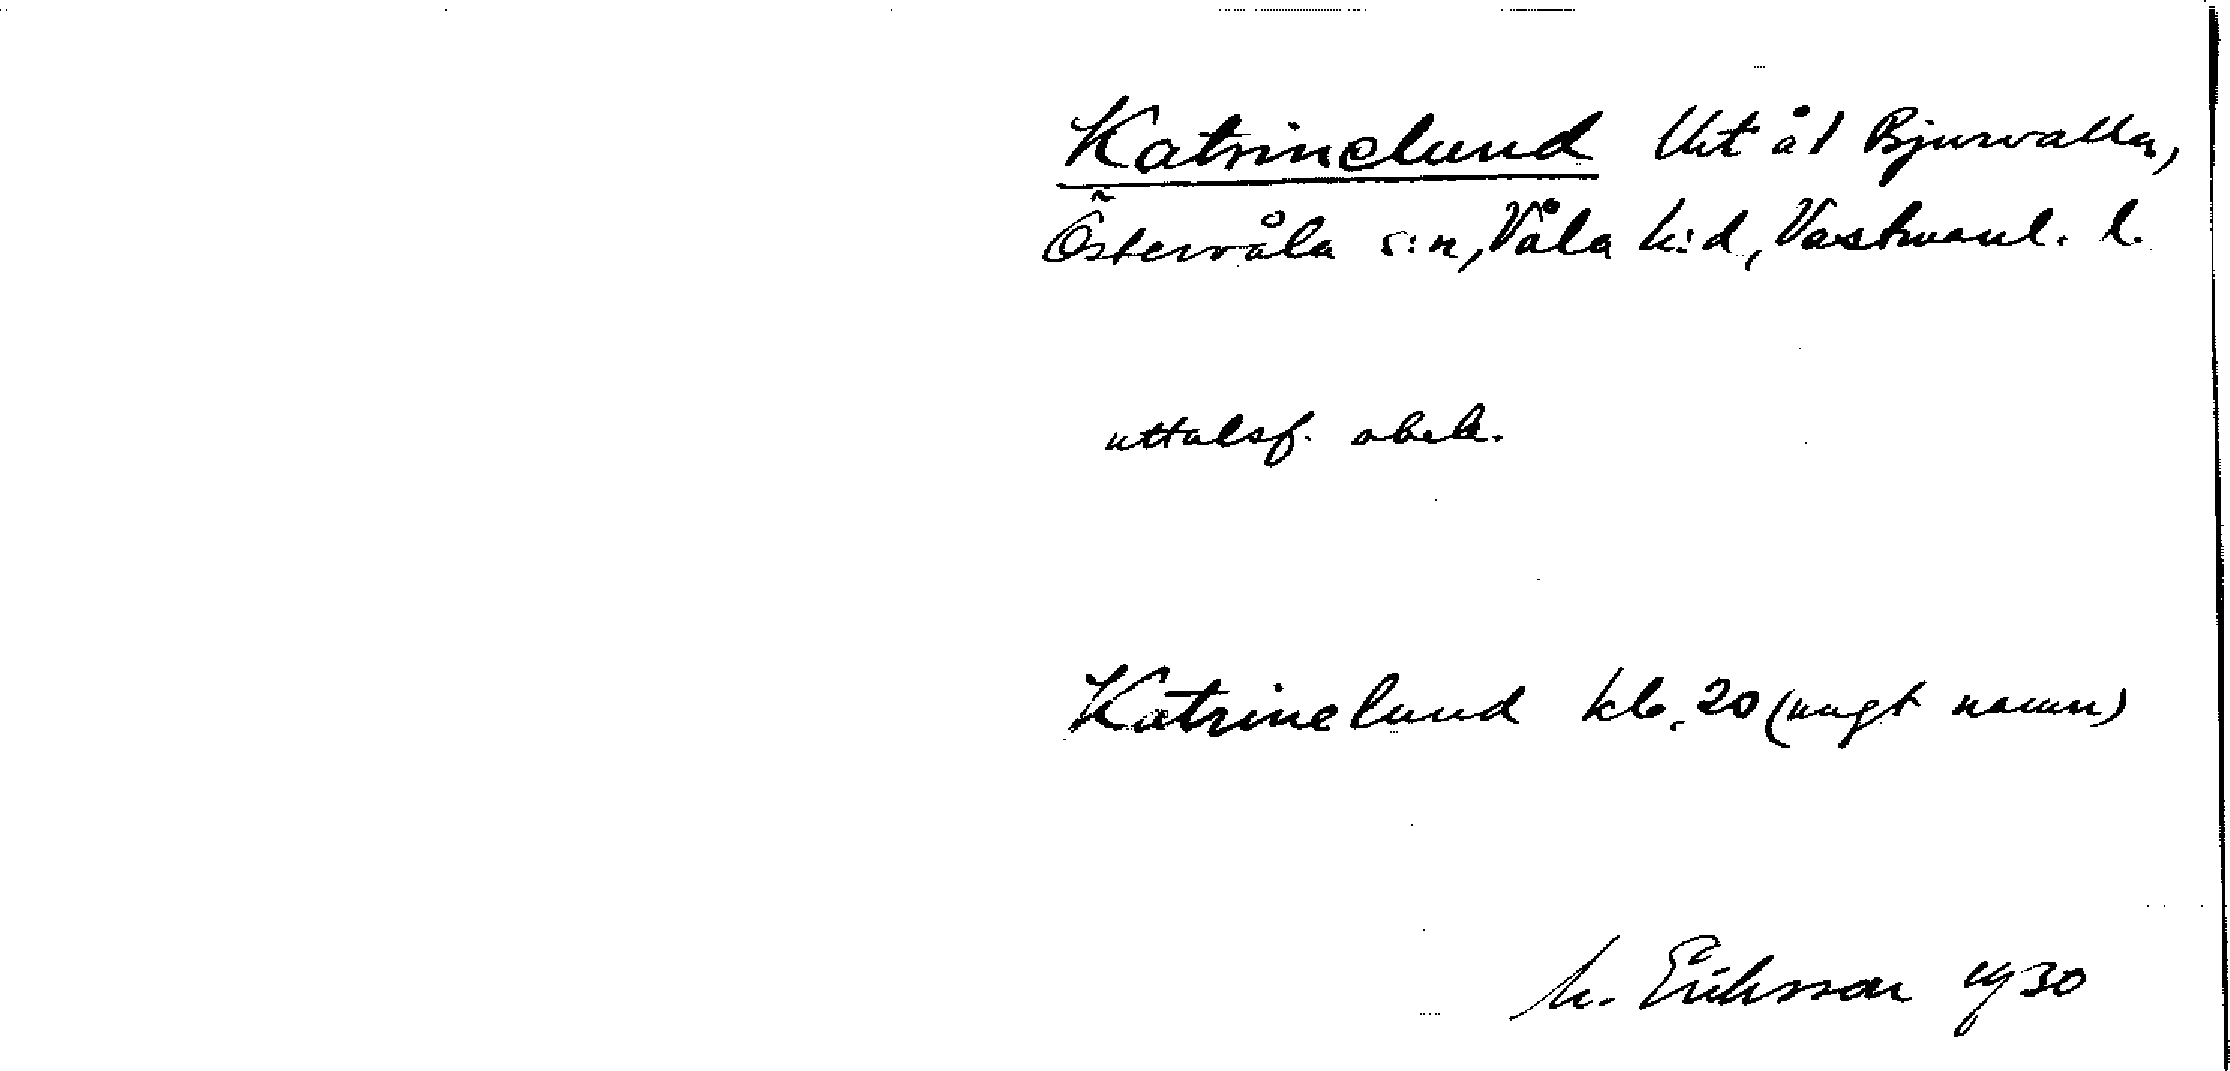 Katrinelund Utåt Bjurvalla,
Östervåla s:n, Våla h:d, Västmanl. l.
uttalsf. obek.
Katrinelund kb. 20 (ungt namn)
M. Eriksson 1930